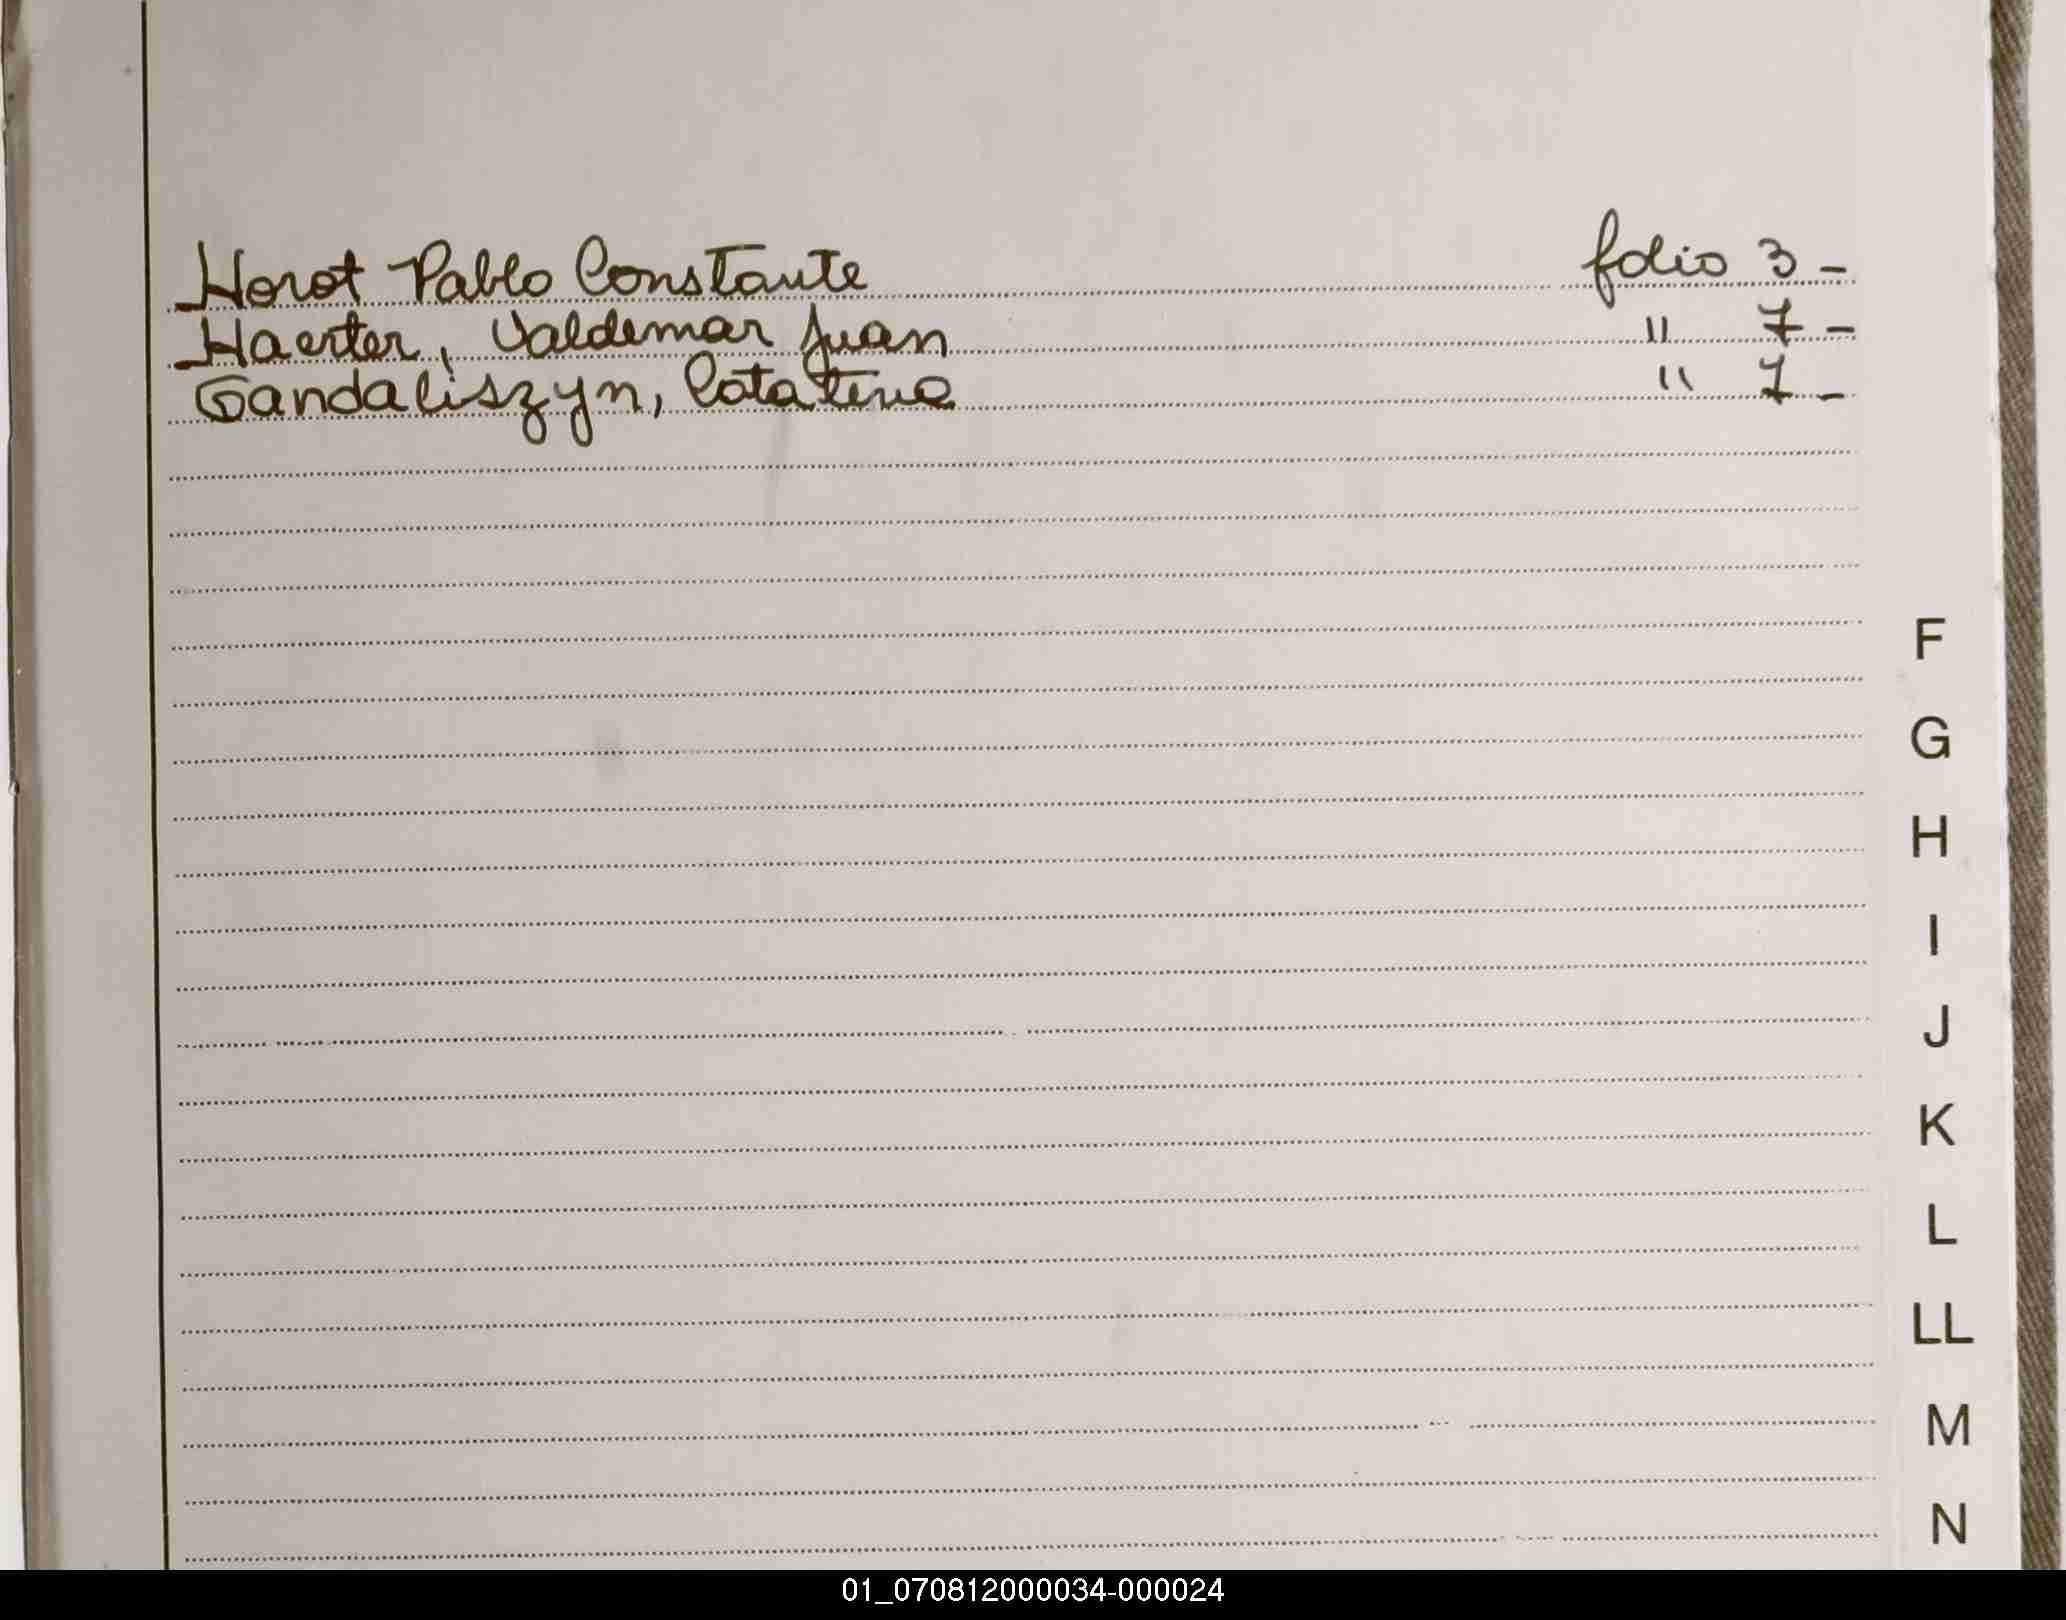 Horst Pablo Constante folio 3 -
Haerter, Valdemar Juan " 7 -
Gandaliszyn, Catalina " 7 -
F
G
H
I
J
K
L
LL
M
N
01_070812000034-000024